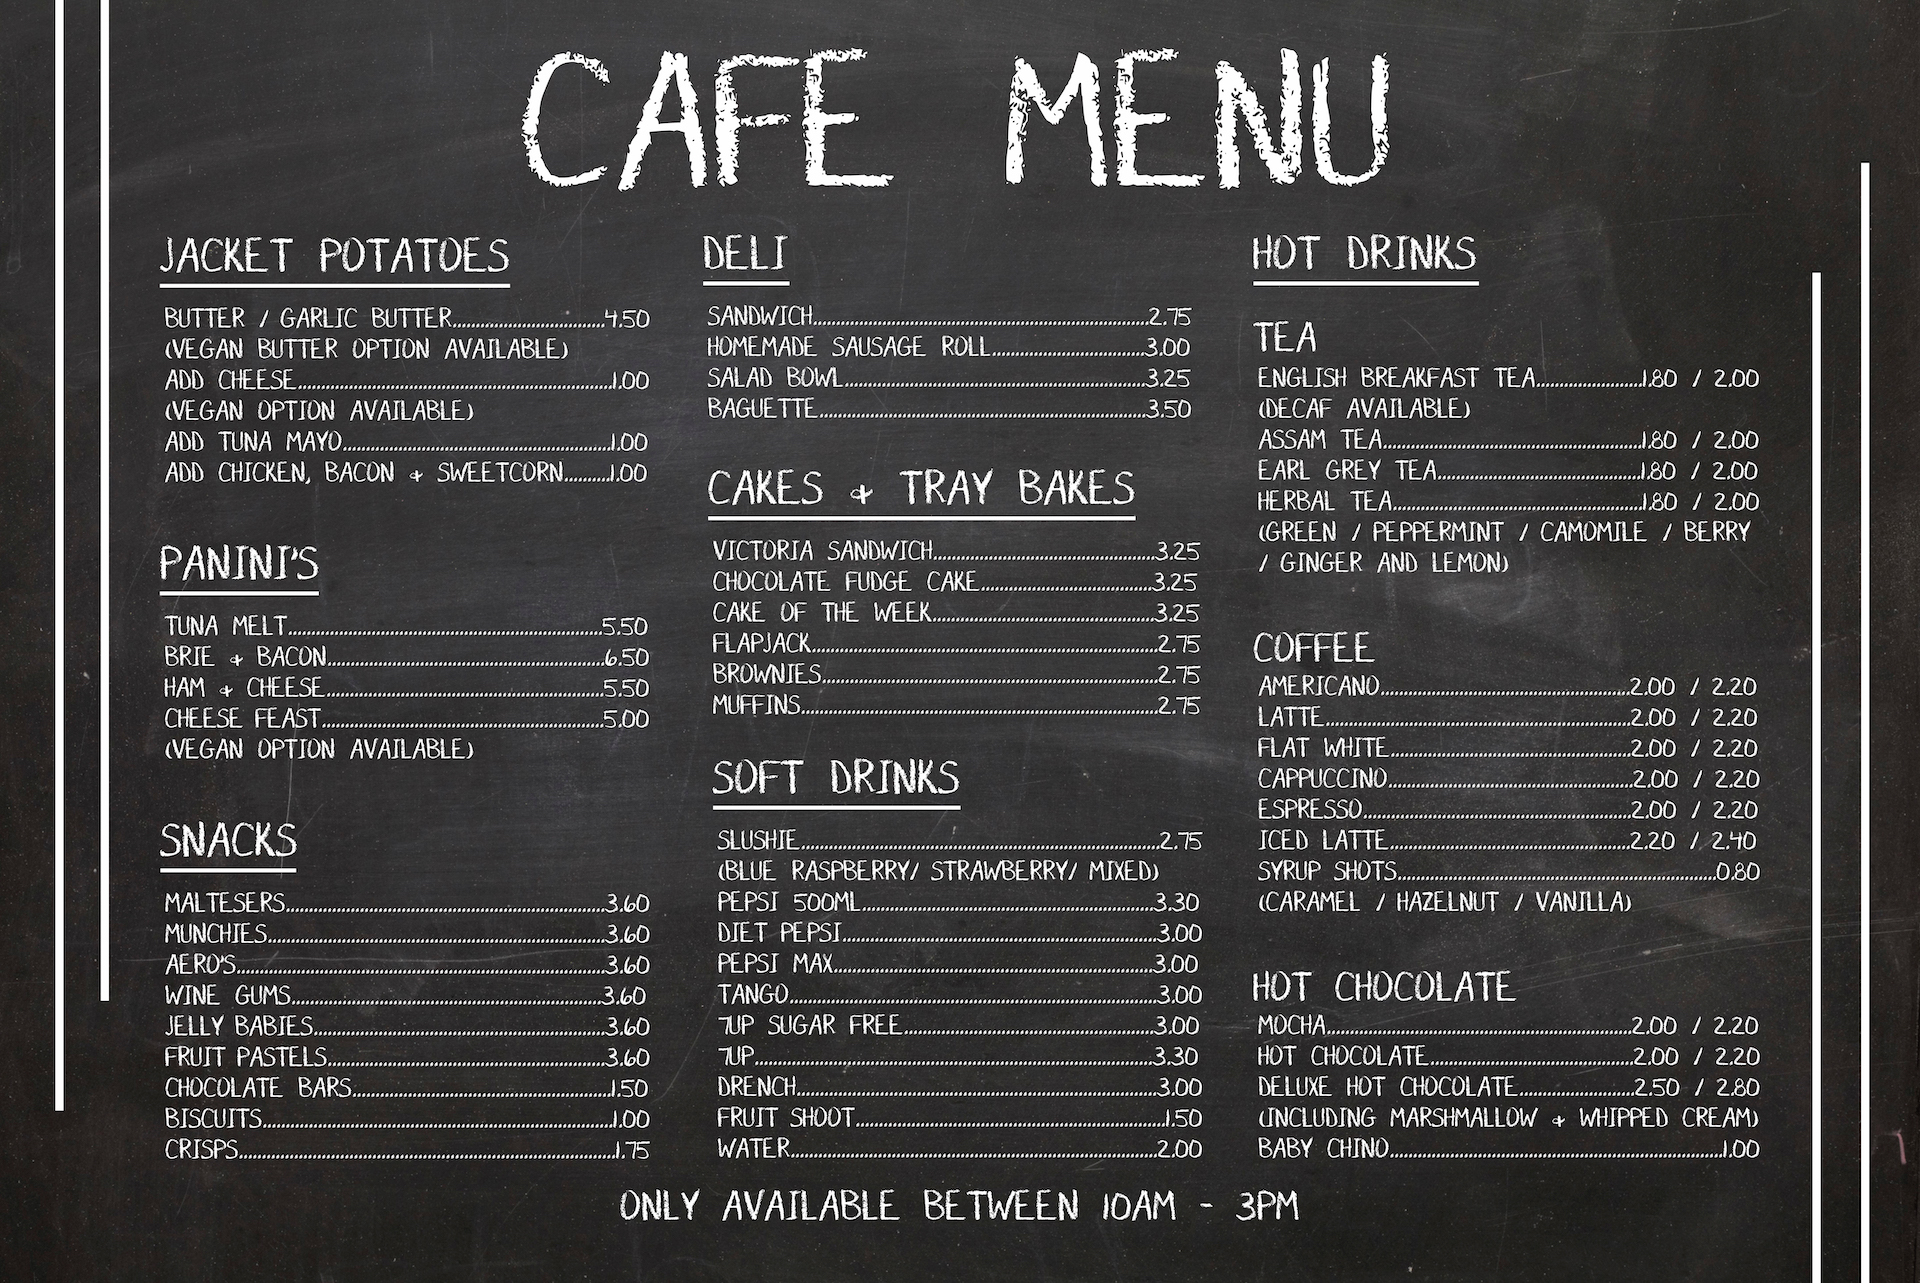 CAFE MENU
JACKET POTATOES
BUTTER / GARLIC BUTTER 4.50
(VEGAN BUTTER OPTION AVAILABLE)
ADD CHEESE 1.00
(VEGAN OPTION AVAILABLE)
ADD TUNA MAYO 1.00
ADD CHICKEN, BACON & SWEETCORN 1.00
PANINI'S
TUNA MELT 5.50
BRIE & BACON 6.50
HAM & CHEESE 5.50
CHEESE FEAST 5.00
(VEGAN OPTION AVAILABLE)
SNACKS
MALTESERS 3.60
MUNCHIES 3.60
AERO'S 3.60
WINE GUMS 3.60
JELLY BABIES 3.60
FRUIT PASTELS 3.60
CHOCOLATE BARS 1.50
BISCUITS 1.00
CRISPS 1.75
DELI
SANDWICH 2.75
HOMEMADE SAUSAGE ROLL 3.00
SALAD BOWL 3.25
BAGUETTE 3.50
CAKES & TRAY BAKES
VICTORIA SANDWICH 3.25
CHOCOLATE FUDGE CAKE 3.25
CAKE OF THE WEEK 3.25
FLAPJACK 2.75
BROWNIES 2.75
MUFFINS 2.75
SOFT DRINKS
SLUSHIE 2.75
(BLUE RASPBERRY/ STRAWBERRY/ MIXED)
PEPSI 500ML 3.30
DIET PEPSI 3.00
PEPSI MAX 3.00
TANGO 3.00
7UP SUGAR FREE 3.00
7UP 3.30
DRENCH 3.00
FRUIT SHOOT 1.50
WATER 2.00
HOT DRINKS
TEA
ENGLISH BREAKFAST TEA 1.80 / 2.00
(DECAF AVAILABLE)
ASSAM TEA 1.80 / 2.00
EARL GREY TEA 1.80 / 2.00
HERBAL TEA 1.80 / 2.00
(GREEN / PEPPERMINT / CAMOMILE / BERRY
/ GINGER AND LEMON)
COFFEE
AMERICANO 2.00 / 2.20
LATTE 2.00 / 2.20
FLAT WHITE 2.00 / 2.20
CAPPUCCINO 2.00 / 2.20
ESPRESSO 2.00 / 2.20
ICED LATTE 2.20 / 2.40
SYRUP SHOTS 0.80
(CARAMEL / HAZELNUT / VANILLA)
HOT CHOCOLATE
MOCHA 2.00 / 2.20
HOT CHOCOLATE 2.00 / 2.20
DELUXE HOT CHOCOLATE 2.50 / 2.80
(INCLUDING MARSHMALLOW & WHIPPED CREAM)
BABY CHINO 1.00
ONLY AVAILABLE BETWEEN 10AM - 3PM